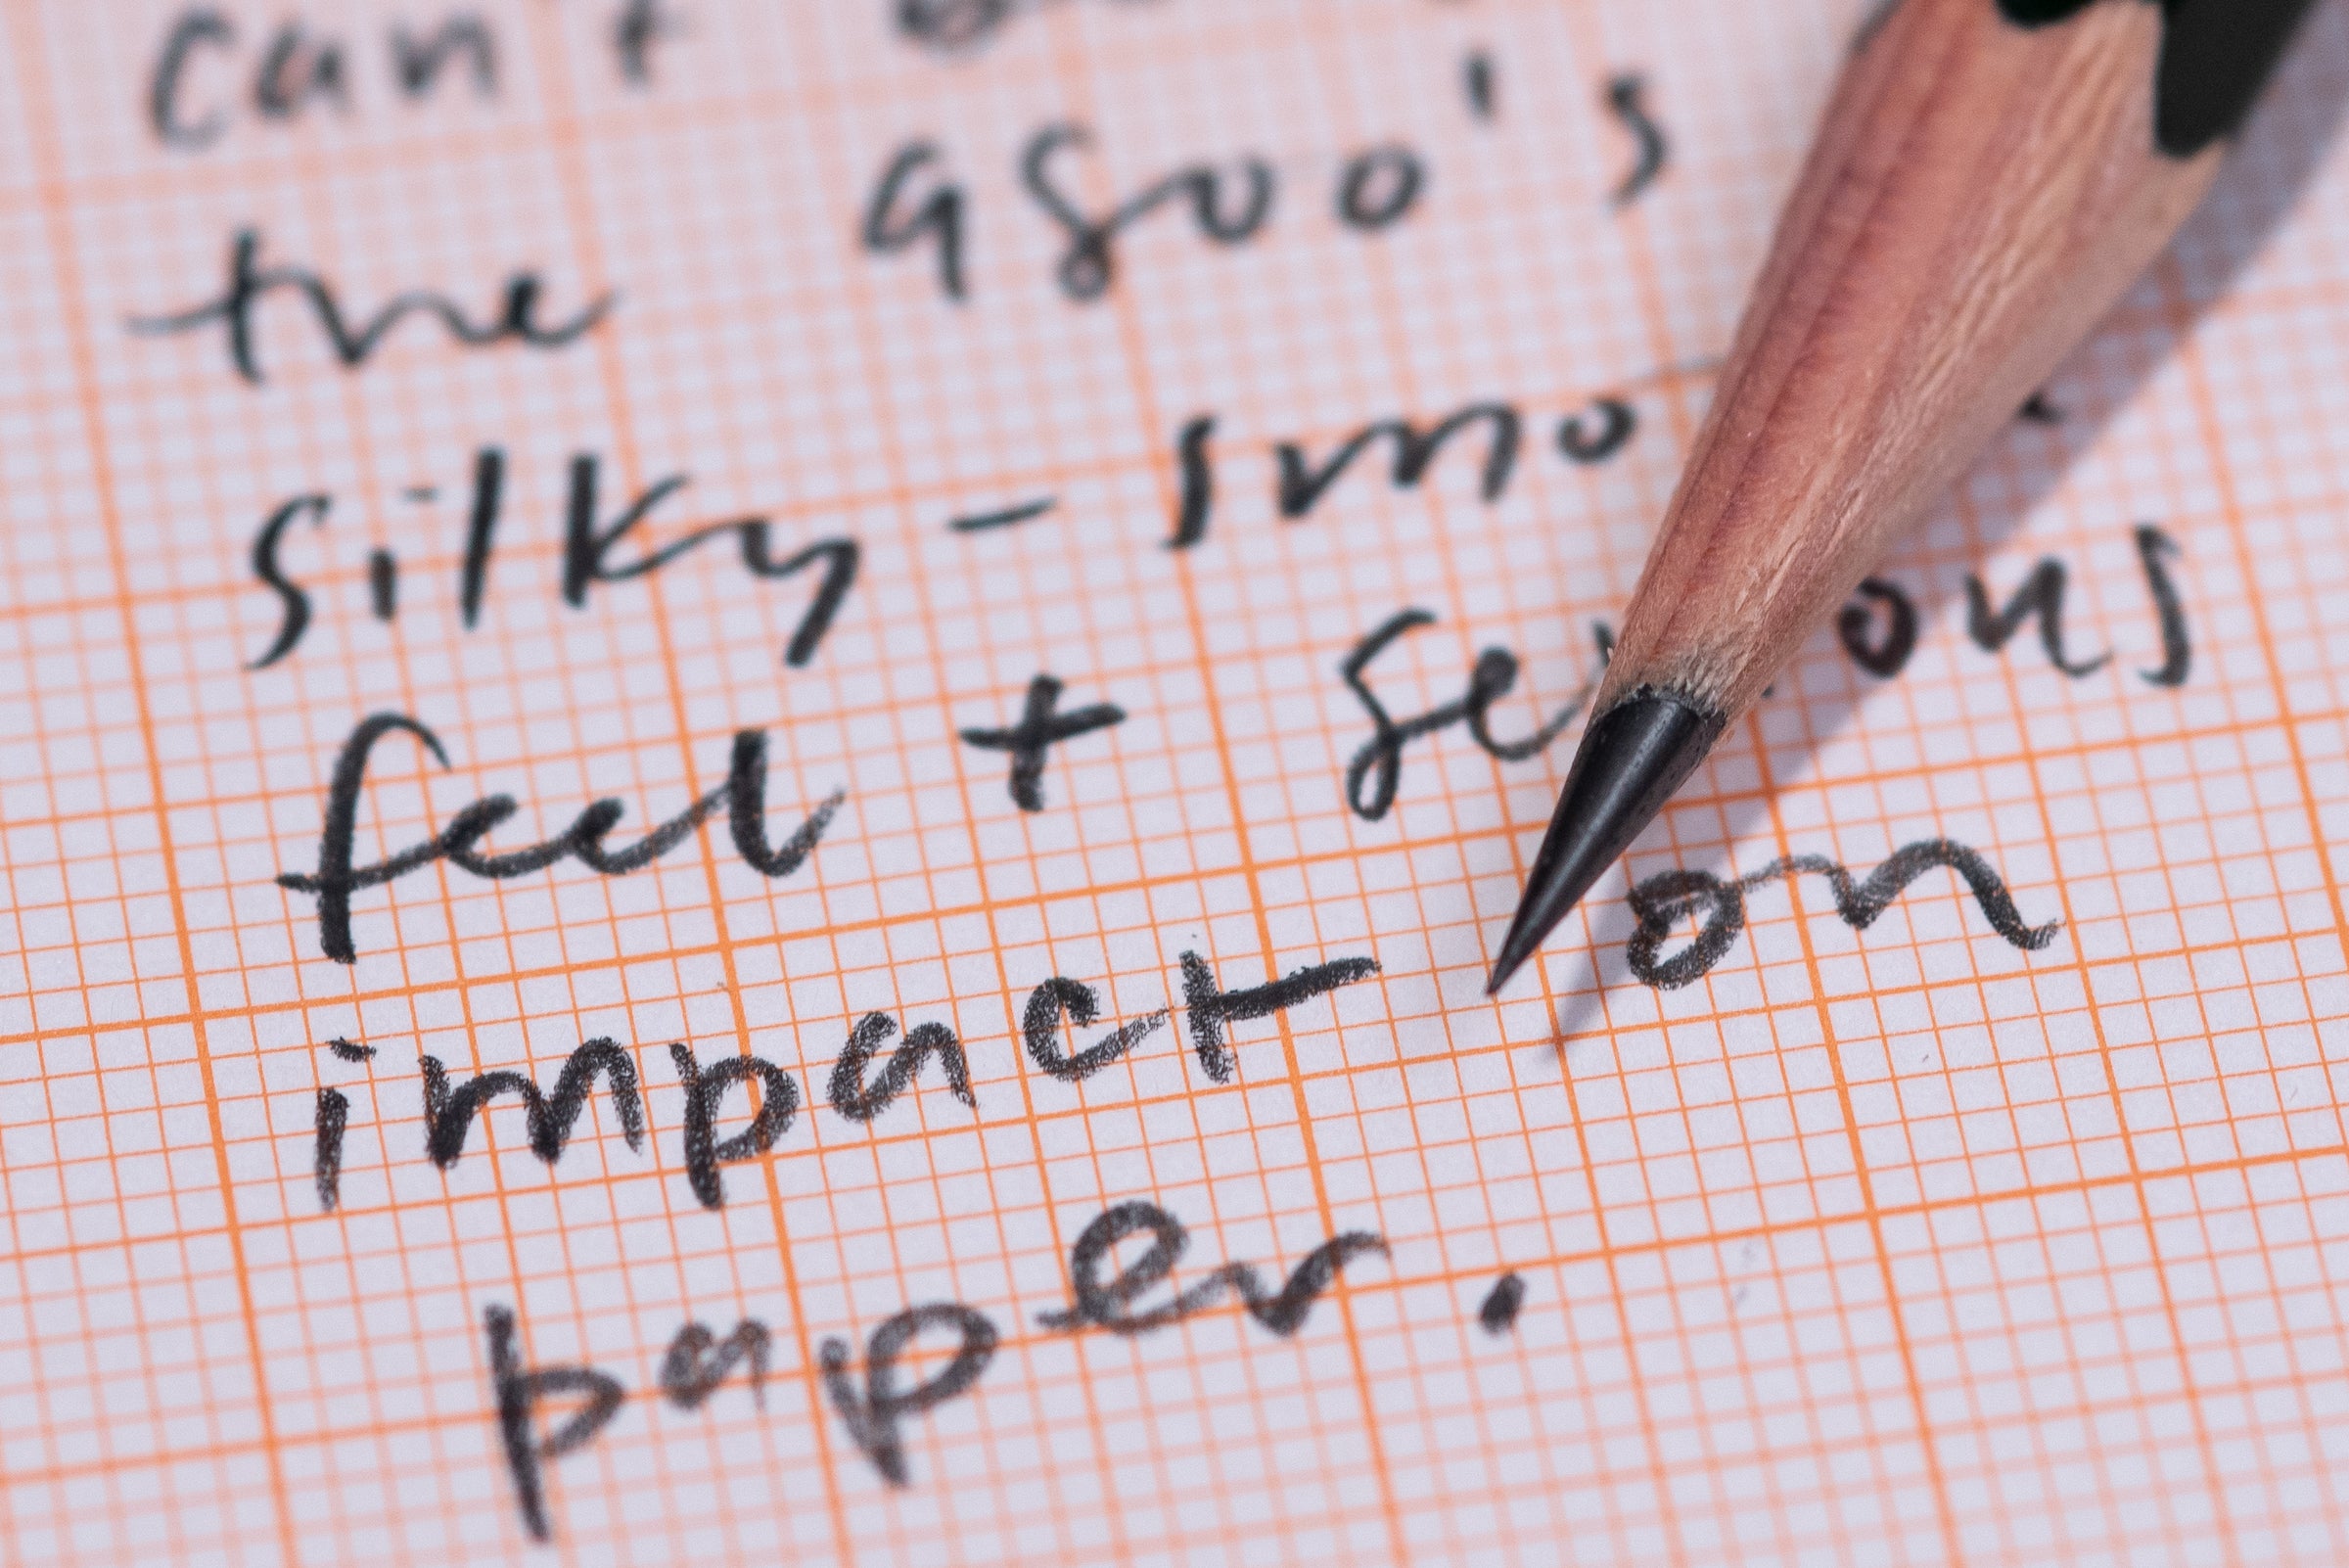 can't
the 9800's
silky-smo
feel + serious
impact on
paper.